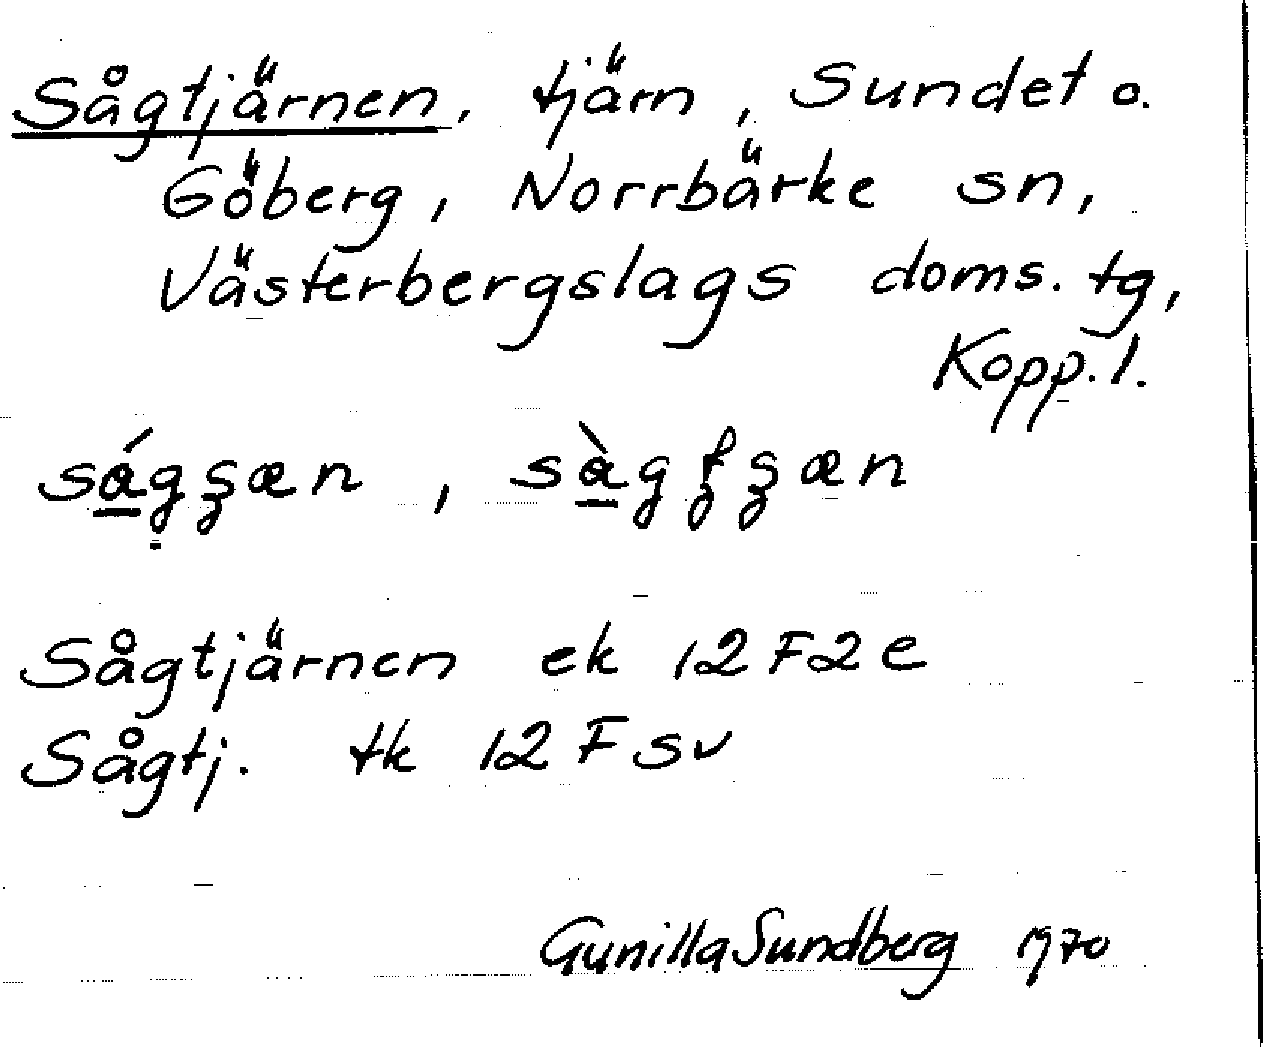 Sågtjärnen, tjärn, Sundet o.
Göberg, Norrbärke sn,
Västerbergslags doms. tg,
Kopp. l.
Sågtjärnen ek 12F2e
Sågtj. tk 12F sv
Gunilla Sundberg 1970